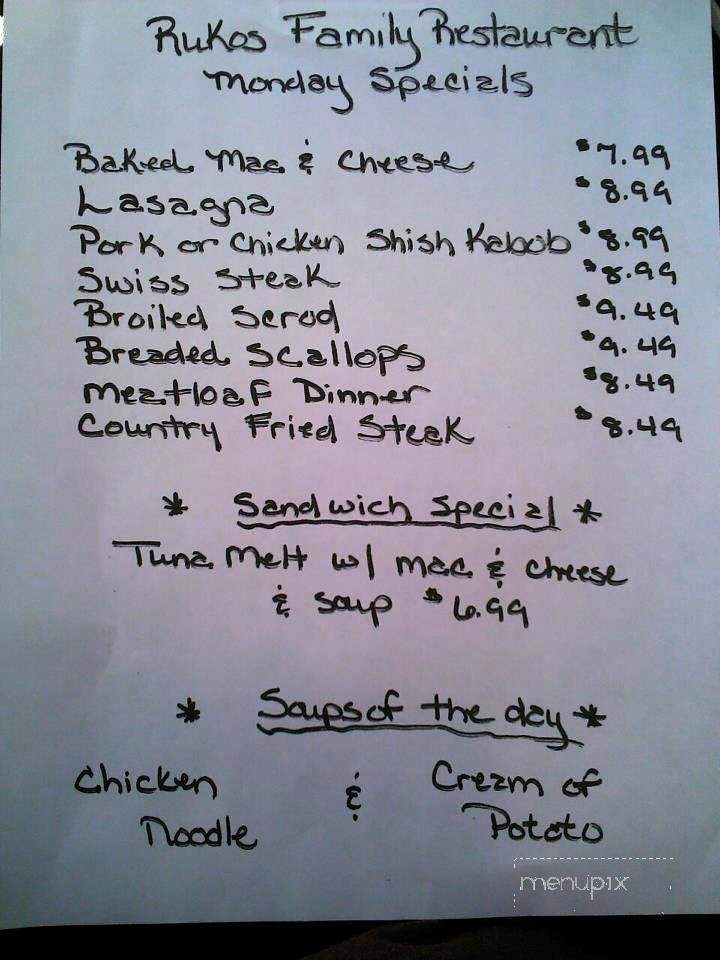 Rukos Family Restaurant
Monday Specials
Baked Mac & Cheese $7.99
Lasagna $8.99
Pork or Chicken Shish Kabob $8.99
Swiss Steak $8.99
Broiled Scrod $9.49
Breaded Scallops $9.49
Meatloaf Dinner $8.49
Country Fried Steak $8.49
* Sandwich Special *
Tuna Melt w/ mac & cheese
& soup $6.99
* Soups of the day *
Chicken & Cream of
Noodle Pototo
menupix